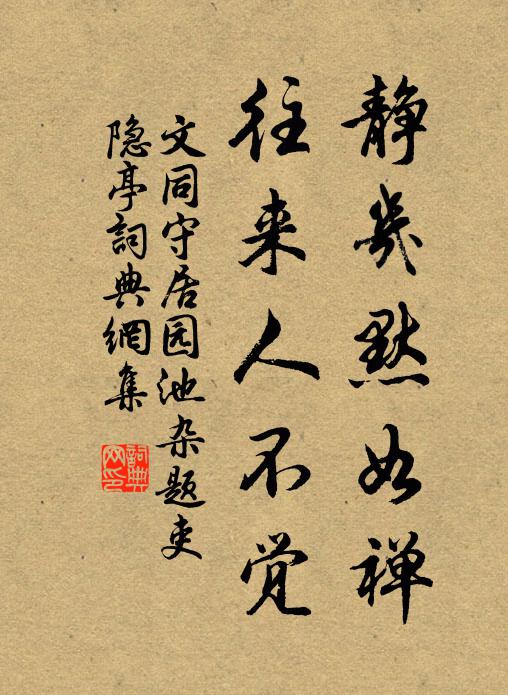 静几默如禅
往来人不觉
文同守居园池杂题吏
隐亭詞典網集
詞典网印